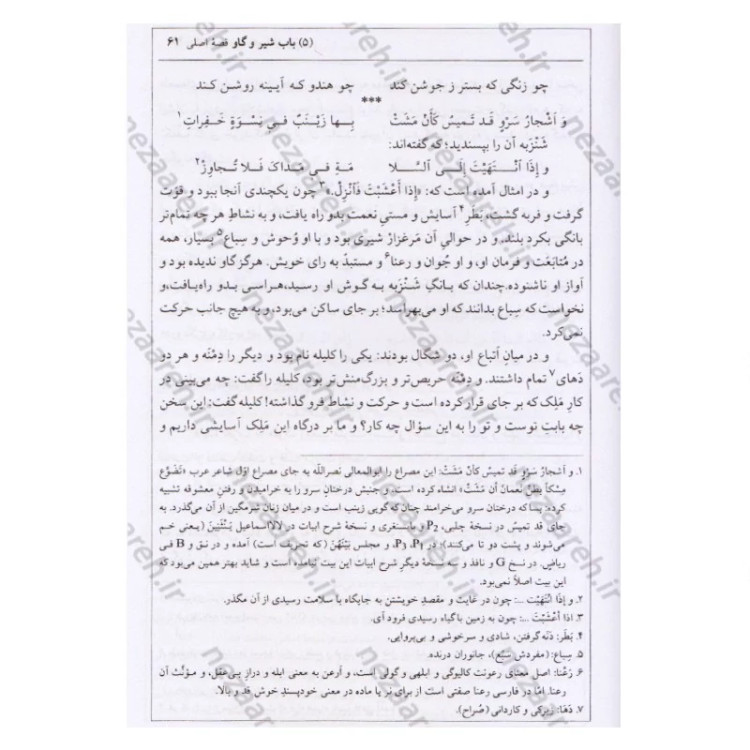 (۵) باب شیر و گاو قصهٔ اصلی ۶۱
چو زنگی که بستر ز جوشن کند چو هندو که آیینه روشن کند
***
وَ اَشْجارُ سَرْوٍ قَد تَمیسُ کَأَنْ مَشَتْ بِها زَیْنَبٌ فی نِسْوَةٍ خَفِراتِ۱
شَنْزَبه آن را بپسندید؛ که گفته‌اند:
و إِذَا انْتَهَیْتَ إِلَی السَّلا مَةِ فی مَداکَ فَلا تُجاوِزْ۲
و در امثال آمده است که: «إِذا أَعْشَبْتَ فَانْزِلْ.»۳ چون یکچندی آنجا ببود و قوّت
گرفت و فربه گشت، بَطَرِ۴ آسایش و مستیِ نعمت بدو راه یافت، و به نشاطِ هر چه تمام‌تر
بانگی بکرد بلند. و در حوالیِ آن مَرغزار شیری بود و با او وُحوش و سِباعِ۵ بسیار، همه
در مُتابَعَت و فرمان او، و او جُوان و رعنا۶ و مستبدّ به رای خویش. هرگز گاو ندیده بود و
آواز او ناشنوده. چندان که بانگِ شَنْزَبه به گوش او رسید، هراسی بدو راه‌یافت، و
نخواست که سِباع بدانند که او می‌بهراسد؛ بر جای ساکن می‌بود، و به هیچ جانب حرکت
نمی‌کرد.
و در میانِ اَتباع او، دو شگال بودند: یکی را کلیله نام بود و دیگر را دِمْنَه و هر دو
دَهای۷ تمام داشتند. و دِمْنَه حریص‌تر و بزرگ‌منش‌تر بود، کلیله را گفت: چه می‌بینی در
کارِ مَلِک که بر جای قرار کرده است و حرکت و نشاط فرو گذاشته! کلیله گفت: این سخن
چه بابتِ توست و تو را به این سؤال چه کار؟ و ما بر درگاه این مَلِک آسایشی داریم و
۱. و اَشجارُ سَرْوٍ قَد تمیسُ کَأنْ مَشَتْ: این مصراع را ابوالمعالی نصراللّه به جای مصراع اوّل شاعر عرب «تَضَوَّعَ
مِسْکاً بَطنُ نَعمانَ أن مَشَتْ» انشاد کرده است. و جنبش درختان سرو را به خرامیدن و رفتن معشوقه تشبیه
کرده: بسا که درختان سرو می‌خرامند چنان‌که گویی زینب است و در میان زنان شرمگین از آن می‌گذرد. به
جای قد تمیسُ در نسخهٔ چلبی، P2 و بایسنغری و نسخهٔ شرح ابیات در لالااسماعیل یَنْثَنینَ (یعنی خم
می‌شوند و پشت دو تا می‌کنند)؛ در P1، P3 و مجلس بَیْنَهُنّ (که تحریف است) آمده و در نق و B فی
ریاضٍ. در نسخ G و نافذ و سه نسخهٔ دیگرِ شرح ابیات این بیت نیامده است و شاید بهتر همین می‌بود که
این بیت اصلاً نمی‌بود.
۲. و إذَا انْتَهَیْتَ ...: چون در غایت و مقصدِ خویشتن به جایگاه با سلامت رسیدی از آن مگذر.
۳. اذا أعْشَبْتَ ...: چون به زمین باگیاه رسیدی فرود آی.
۴. بَطَر: دَنه گرفتن، شادی و سرخوشی و بی‌پروایی.
۵. سِباع: (مفردش سَبُع)، جانوران درنده.
۶. رَعْنا: اصل معنای رعونت کالیوگی و ابلهی و گولی است، و اَرعن به معنی ابله و درازِ بی‌عقل، و مؤنّث آن
رعنا. امّا در فارسی رعنا صفتی است از برای نر یا ماده در معنی خودپسندِ خوش قد و بالا.
۷. دَها: زیرکی و کاردانی (صُراح).
nezaareh.ir